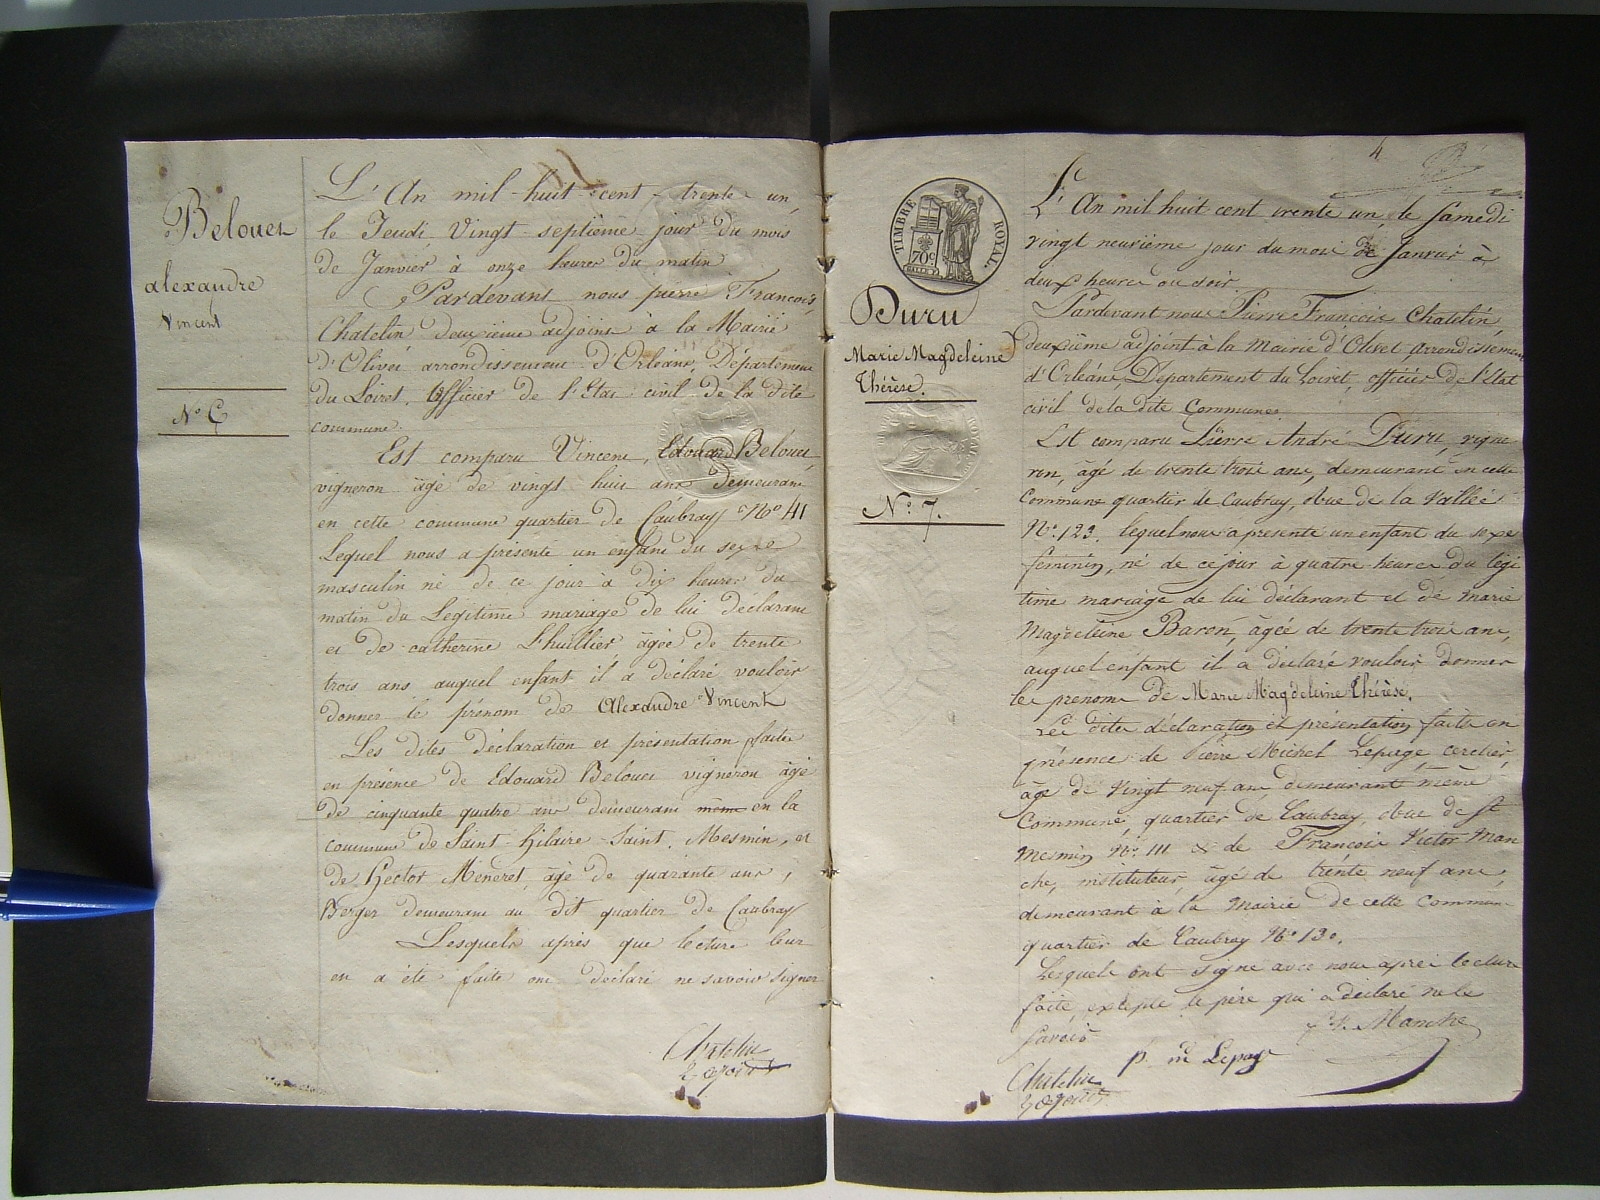 Belouet
alexandre
Vincent
N.o 6
L'An mil-huit-cent-trente-un,
le Jeudi Vingt-septième jour du mois
de Janvier à onze heures du matin
Pardevant nous pierre François
Chatelin, deuxième adjoint à la Mairie
d'Olivet arrondissement d'Orléans, Département
du Loiret, Officier de l'Etat civil de la dite
commune.
Est comparu Vincent, Edouard Belouet,
vigneron âgé de vingt huit ans demeurant
en cette commune quartier de Caubray N.o 41
Lequel nous a présenté un enfant du sexe
masculin né de ce jour à dix heures du
matin du Legitime mariage de lui déclarant
et de catherine Lhuillier, âgée de trente
trois ans auquel enfant il a déclaré vouloir
donner le prénom de Alexandre Vincent
Les dites déclaration et présentation faites
en présence de Edouard Belouet vigneron âgé
de cinquante quatre ans demeurant même en la
commune de Saint-Hilaire-Saint-Mesmin, et
de Hector Meneret, âgé de quarante ans,
Berger demeurant au dit quartier de Caubray
Lesquels après que lecture leur
en a été faite ont déclaré ne savoir signer
Chatelin
2 adjoint
4
TIMBRE ROYAL.
70c
Duru
Marie Magdeleine
Thérèse.
N.o 7.
L'An mil huit cent trente un, le Samedi
vingt neuvième jour du mois de Janvier à
deux heures du soir
Pardevant nous Pierre François Chatelin,
deuxième adjoint à la mairie d'Olivet arrondissement
d'Orléans, Departement du Loiret, officier de l'Etat
civil de la dite Commune.
Est comparu Pierre André Duru, vigne
ron, âgé de trente trois ans, demeurant en cette
Commune quartier de Caubray, rue de la Vallée
N.o 123. lequel nous a presenté un enfant du sexe
feminin, né de ce jour à quatre heures du legi
time mariage de lui déclarant et de Marie
Magdeleine Baron, âgée de trente trois ans,
auquel enfant il a déclaré vouloir donner
les prenoms de Marie Magdeleine Thérèse.
Les dites déclaration et présentation faites en
présence de Pierre Michel Lepage, cerclier,
âgé de Vingt neuf ans demeurant même
Commune, quartier de Caubray, rue de St
Mesmin N.o 111 & de François Victor Man
che, instituteur, âgé de trente neuf ans,
demeurant à la Mairie de cette Commune
quartier de Caubray N.o 130.
Lesquels ont signé avec nous après lecture
faite, excepté le père qui a déclaré ne le
Savoir
f. V. Manche
p. m Lepage
Chatelin
2 adjoint